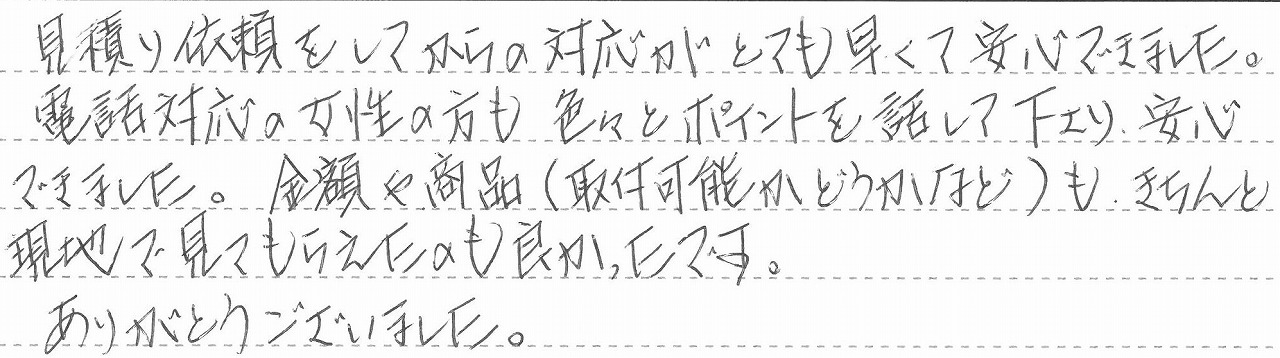 見積り依頼をしてからの対応がとても早くて安心できました。
電話対応の女性の方も色々とポイントを話して下さり、安心
できました。金額や商品(取付可能かどうかなど)も、きちんと
現地で見てもらえたのも良かったです。
ありがとうございました。